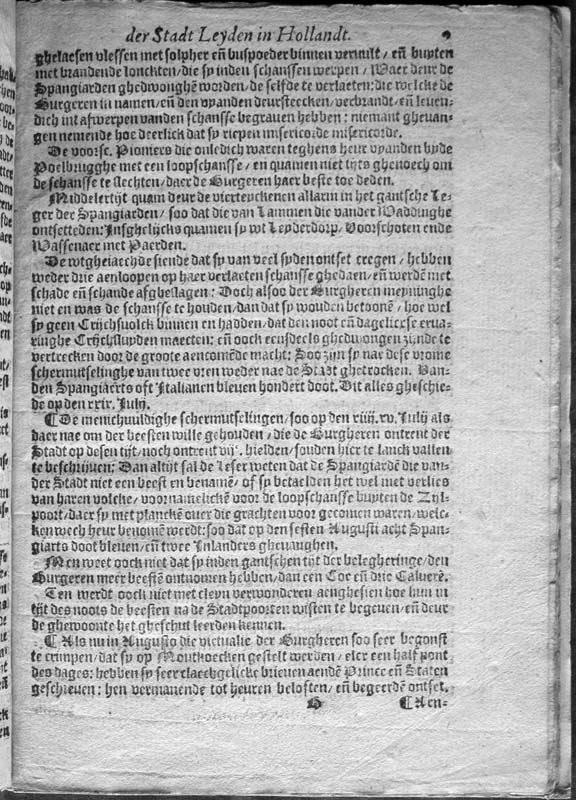 der Stadt Leyden in Hollandt. 9
ghelaesen vlessen met solpher eñ buspoeder binnen vervult / eñ buyten
met brandende lonckten / die sy inden schanssen werpen / Waer deur de
Spangiarden ghedwonghẽ worden / de selfde te verlaeten: die welcke de
Burgeren in namen / eñ den vyanden deursteecken / verbrandt / eñ leuen-
dich int afwerpen vanden schansse begrauen hebben: niemant gheuan-
gen nemende hoe deerlick dat sy riepen misericorde misericorde.
De voorsc. Pioniers die onledich waren teghens heur vyanden byde
Poelbrugghe met een loopschansse / en quamen niet tijts ghenoech om
de schansse te slechten / daer de Burgeren haer beste toe deden.
Middelertijt quam deur de vierteyckenen allarm in het gantsche Le-
ger der Spangiarden / soo dat die van Lammen die vander Waddinghe
ontsetteden: Insghelijcks quamen sy wt Leyderdorp / Voorschoten ende
Wassenaer met Paerden.
De wtgheiaechde siende dat sy van veel syden ontset cregen / hebben
weder drie aenloopen op haer verlaeten schansse ghedaen / eñ werdẽ met
schade eñ schande afgeslagen: Doch alsoo der Burgheren meyninghe
niet en was de schansse te houden / dan dat sy wouden betoonẽ / hoe wel
sy geen Crijchsuolck binnen en hadden / dat den noot eñ dagelicxse erua-
ringhe Crijchsluyden maecten: eñ oock eensdeels ghedwongen zijnde te
vertrecken door de groote aencomẽde macht: Soo zijn sy nae dese vrome
schermutselinghe van twee vren weder nae de Stadt ghetrocken. Van-
den Spangiaerts oft Italianen bleuen hondert doot. Dit alles gheschie-
de op den xxix. Iulij.
¶ De menichuuldighe schermutselingen / soo op den xiiij. xv. Iulij als
daer nae om der beesten wille gehouden / die de Burgheren ontrent der
Stadt op desen tijt / noch ontrent vijᶜ. hielden / souden hier te lanck vallen
te beschrijuen: Dan altijt sal de Leser weten dat de Spangiardẽ die van-
der Stadt niet een beest en benamẽ / of sy betaelden het wel met verlies
van haren volcke / voornamelickẽ voor de loopschansse buyten de Zijl-
poort / daer sy met planckẽ ouer die grachten voor gecomen waren / welc-
ken wech heur benomẽ werdt: soo dat op den sesten Augusti acht Span-
giarts doot bleuen / eñ twee Inlanders gheuanghen.
Men weet oock niet dat sy inden gantschen tijt der belegheringe / den
Burgeren meer beestẽ ontnomen hebben / dan een Coe eñ drie Calverẽ.
Ten werdt oock niet met cleyn verwonderen aenghesien hoe hun in
tijt des noots de beesten na de Stadtpoorten wisten te begeuen / eñ deur
de ghewoonte het gheschut leerden kennen.
¶ Als nu in Augusto die victualie der Burgheren soo seer begonst
te crimpen / dat sy op Moutkoecken gestelt werden / elcx een half pont
des dages: hebben sy seer claechgelicke brieuen aendẽ Prince eñ Staten
geschreuen: hen vermanende tot heuren beloften / eñ begeerdẽ ontset.
¶ Aen-